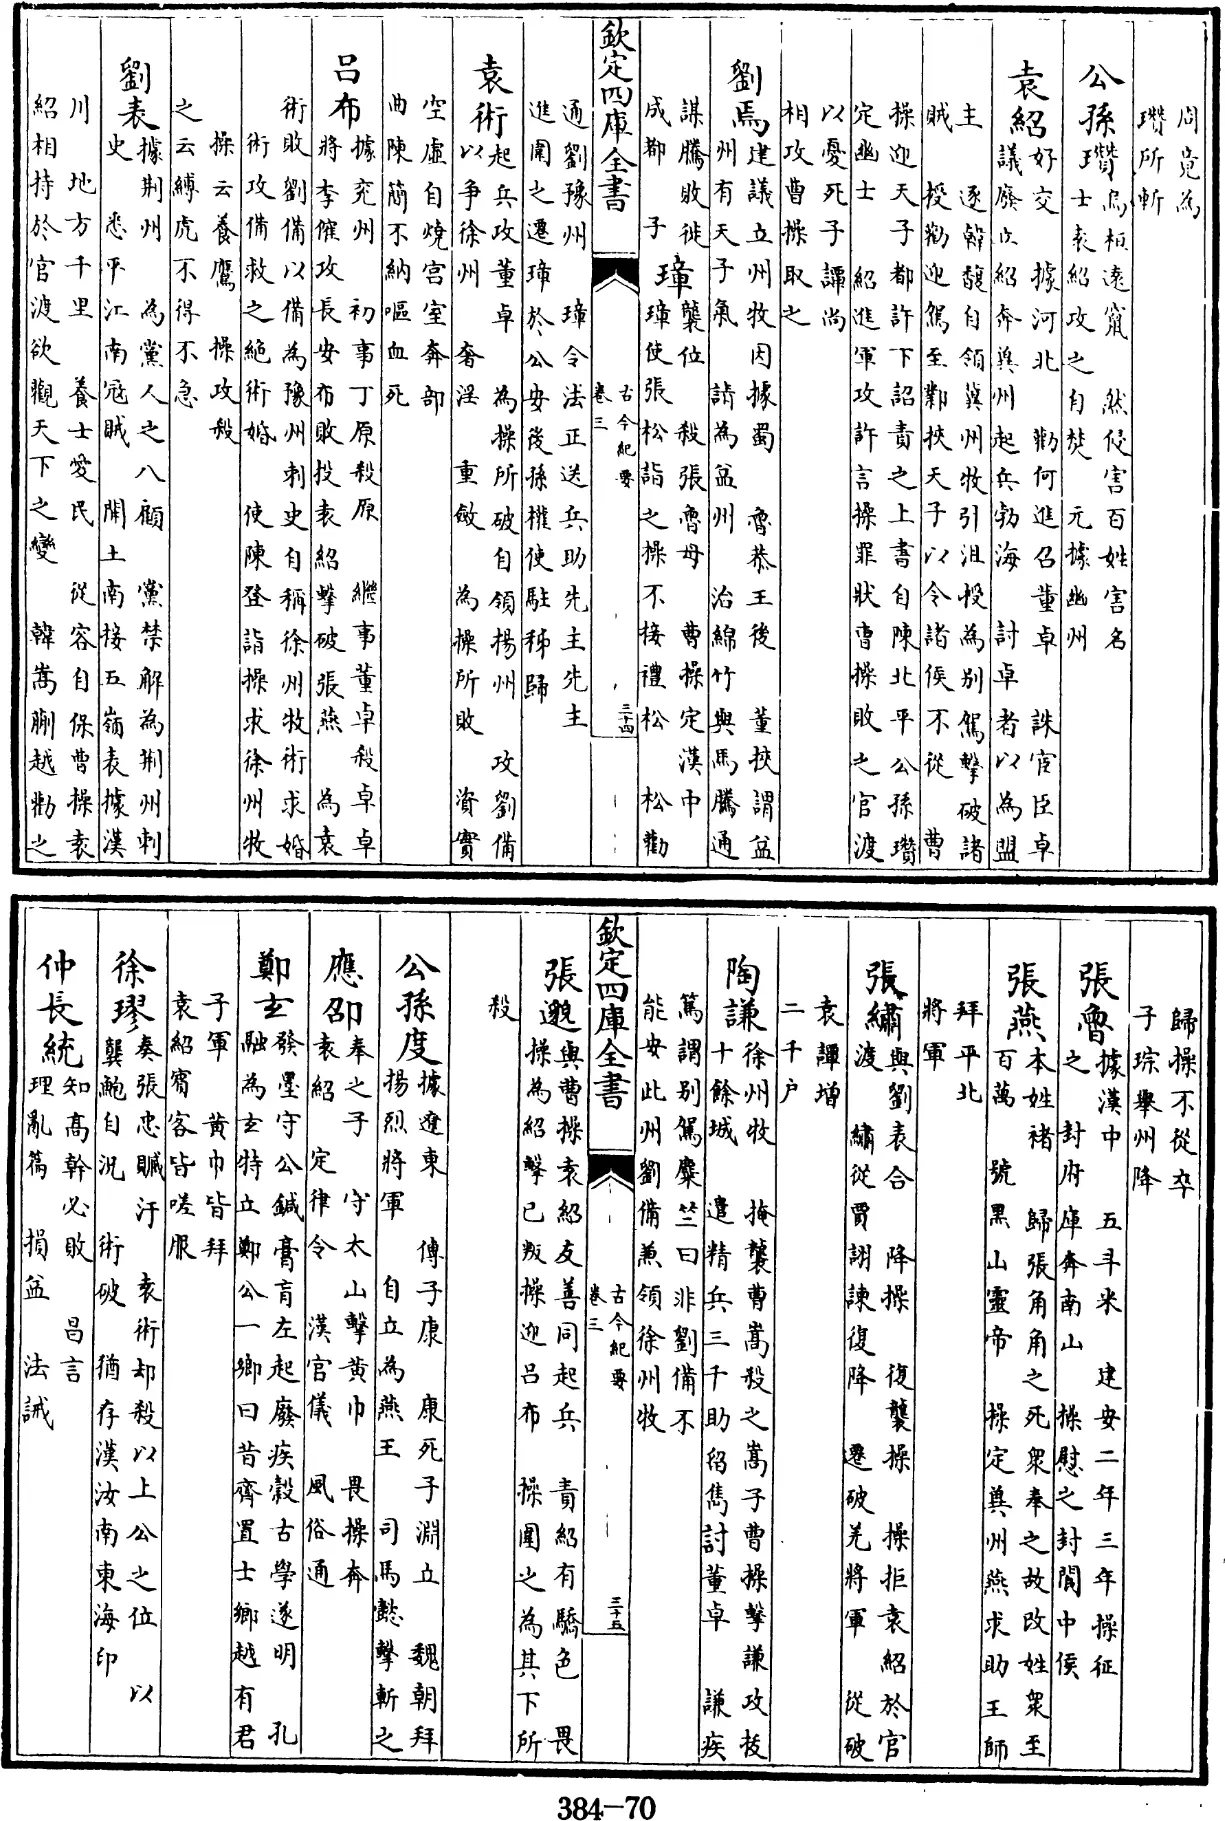 問竟為
瓚所斬
公孫瓚烏桓遠竄 然侵害百姓害名
士袁紹攻之自焚 元據幽州
袁紹好交 據河北 勸何進召董卓 誅宦臣卓
議廢立紹奔冀州起兵勃海 討卓者以為盟
主 逐韓馥自領冀州牧引沮授為別駕擊破諸
賊 授勸迎駕至鄴挾天子以令諸侯不從 曹
操迎天子都許下詔責之上書自陳北平公孫瓚
定幽士 紹進軍攻許言操罪狀曹操敗之官渡
以憂死子譚尚
相攻曹操取之
劉焉建議立州牧因據蜀 魯恭王後 董扶謂益
州有天子氣 請為益州 治綿竹與馬騰通
謀騰敗徙 璋襲位 殺張魯母 曹操定漢中
成都 子 璋使張松詣之操不接禮松 松勸
欽定四庫全書
古今紀要
卷三
三十四
通劉豫州 璋令法正送兵助先主先主
進圍之遷璋於公安後孫權使駐秭歸
袁術起兵攻董卓 為操所破自領揚州 攻劉備
以爭徐州 奢淫 重斂 為操所敗 資實
空虛自燒宮室奔部
曲陳簡不納嘔血死
呂布據兖州 初事丁原殺原 繼事董卓殺卓卓
將李傕攻長安布敗投袁紹擊破張燕 為袁
術敗劉備以備為豫州刺史自稱徐州牧術求婚
術攻備救之絕術婚 使陳登詣操求徐州牧
操云養鷹 操攻殺
之云縛虎不得不急
劉表據荆州 為黨人之八顧 黨禁解為荆州刺
史 悉平江南寇賊 開土南接五嶺表據漢
川 地方千里 養士愛民 從容自保曹操袁
紹相持於官渡欲觀天下之變 韓嵩蒯越勸之
歸操不從卒
子琮舉州降
張魯據漢中 五斗米 建安二年三年操征
之 封府庫奔南山 操慰之封閬中侯
張燕本姓褚 歸張角角之死眾奉之故改姓眾至
百萬 號黑山靈帝 操定冀州燕求助王師
拜平北
將軍
張繡與劉表合 降操 復襲操 操拒袁紹於官
渡 繡從賈詡諫復降 遷破羌將軍 從破
袁譚增
二千户
陶謙徐州牧 掩襲曹嵩殺之嵩子曹操擊謙攻拔
十餘城 遣精兵三千助留雋討董卓 謙疾
篤謂别駕麋竺曰非劉備不
能安此州劉備兼領徐州牧
欽定四庫全書
古今紀要
卷三
三十五
張邈與曹操袁紹友善同起兵 責紹有驕色 畏
操為紹擊已叛操迎吕布 操圍之為其下所
殺
公孫度據遼東 傳子康 康死子淵立 魏朝拜
揚烈將軍 自立為燕王 司馬懿擊斬之
應卲奉之子 守太山擊黄巾 畏操奔
袁紹 定律令 漢官儀 風俗通
鄭玄發墨守公鍼膏肓左起廢疾穀古學遂明 孔
融為玄特立鄭公一鄉曰昔齊置士鄉越有君
子軍 黄巾皆拜
袁紹賓客皆嗟服
徐璆奏張忠贓汙 袁術却殺以上公之位 以
龔鮑自況 術破 猶存漢汝南東海印
仲長統知高幹必敗 昌言
理亂篇 損益 法誡
384-70